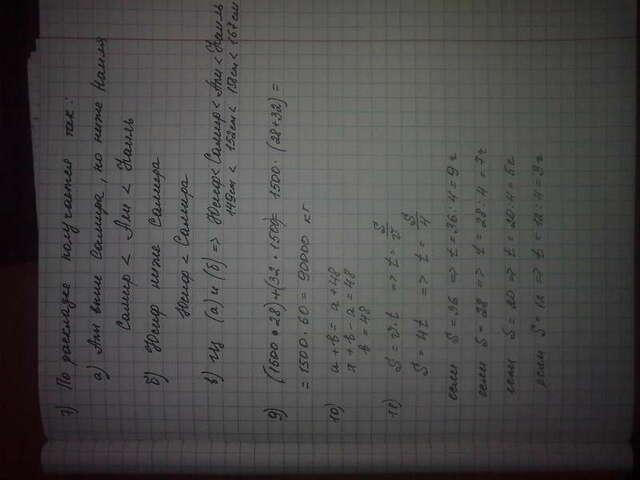 7) По раскладке получается так:
а) Али выше Самира, но ниже Наиля
Самир < Али < Наиль
б) Юсиф ниже Самира
Юсиф < Самира
в) (а) и (б) => Юсиф < Самир < Али < Наиль
149см < 152см < 158см < 167см
9) (1500 · 28) + (32 · 1500) = 1500 · (28+32) =
= 1500 · 60 = 90000 кг
10) a + b = a + 48
a + b - a = 48
b = 48
11) S = v · t => t = S/v
S = 4t => t = S/4
если S = 36 => t = 36 : 4 = 9 г
если S = 28 => t = 28 : 4 = 7 г
если S = 20 => t = 20 : 4 = 5 г
если S = 12 => t = 12 : 4 = 3 г